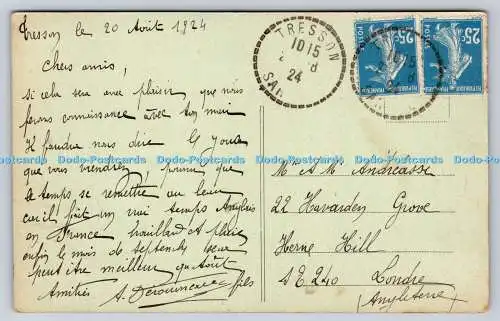 Tresson le 20 Août 1924
Chers amis,
si cela sera avec plaisir que nous
ferons connaissance avec ton mari
Il faudra nous dire le jour
que vous viendrez, pourvu que
le temps se remette au beau
car il fait un vrai temps Anglais
en France brouillard et pluie
enfin le mois de septembre sera
peut être meilleur qu'Août
Amitiés
fils
TRESSON
10 15
24
SAR
25c
POSTES
25c
POSTES
Mr A M Andréasse
22 Hawarden Grove
Herne Hill
SE 240 Londre
(Angleterre)
Dodo-Postcards Dodo-Postcards Dodo-Postcards Dodo-Postcards Dodo-Postcards